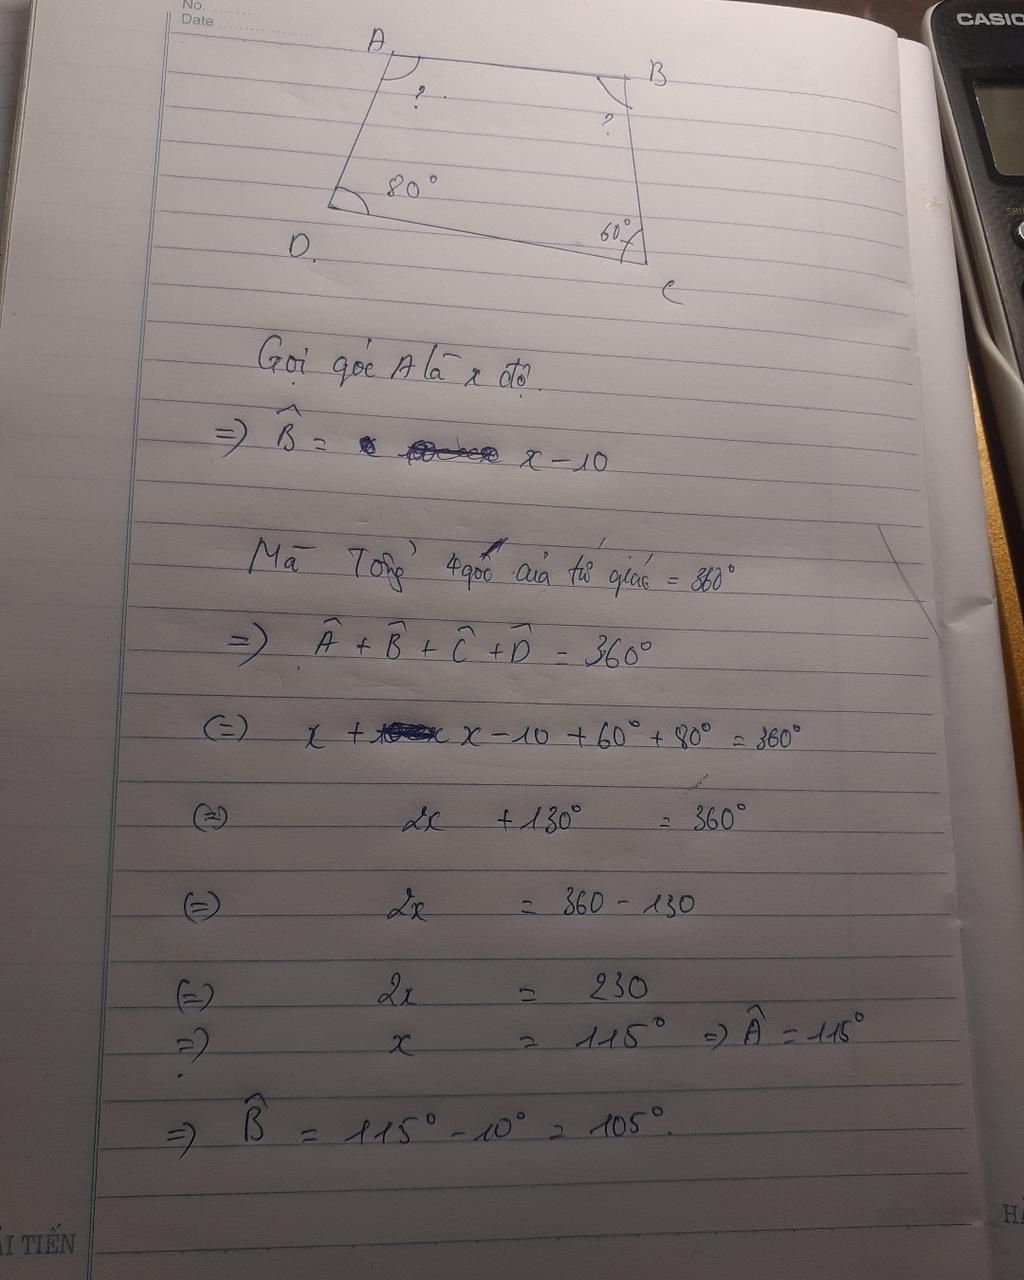 No. ........
Date ..................
CASIO
A
B
?
?
80°
60°
D.
C
Gọi góc A là x độ.
=> B̂ = x - 10
Mà Tổng 4 góc của tứ giác = 360°
=> Â + B̂ + Ĉ + D̂ = 360°
(=) x + x - 10 + 60° + 80° = 360°
(=) 2x + 130° = 360°
(=) 2x = 360 - 130
(=) 2x = 230
=> x = 115° => Â = 115°
=> B̂ = 115° - 10° = 105°.
ẢI TIẾN